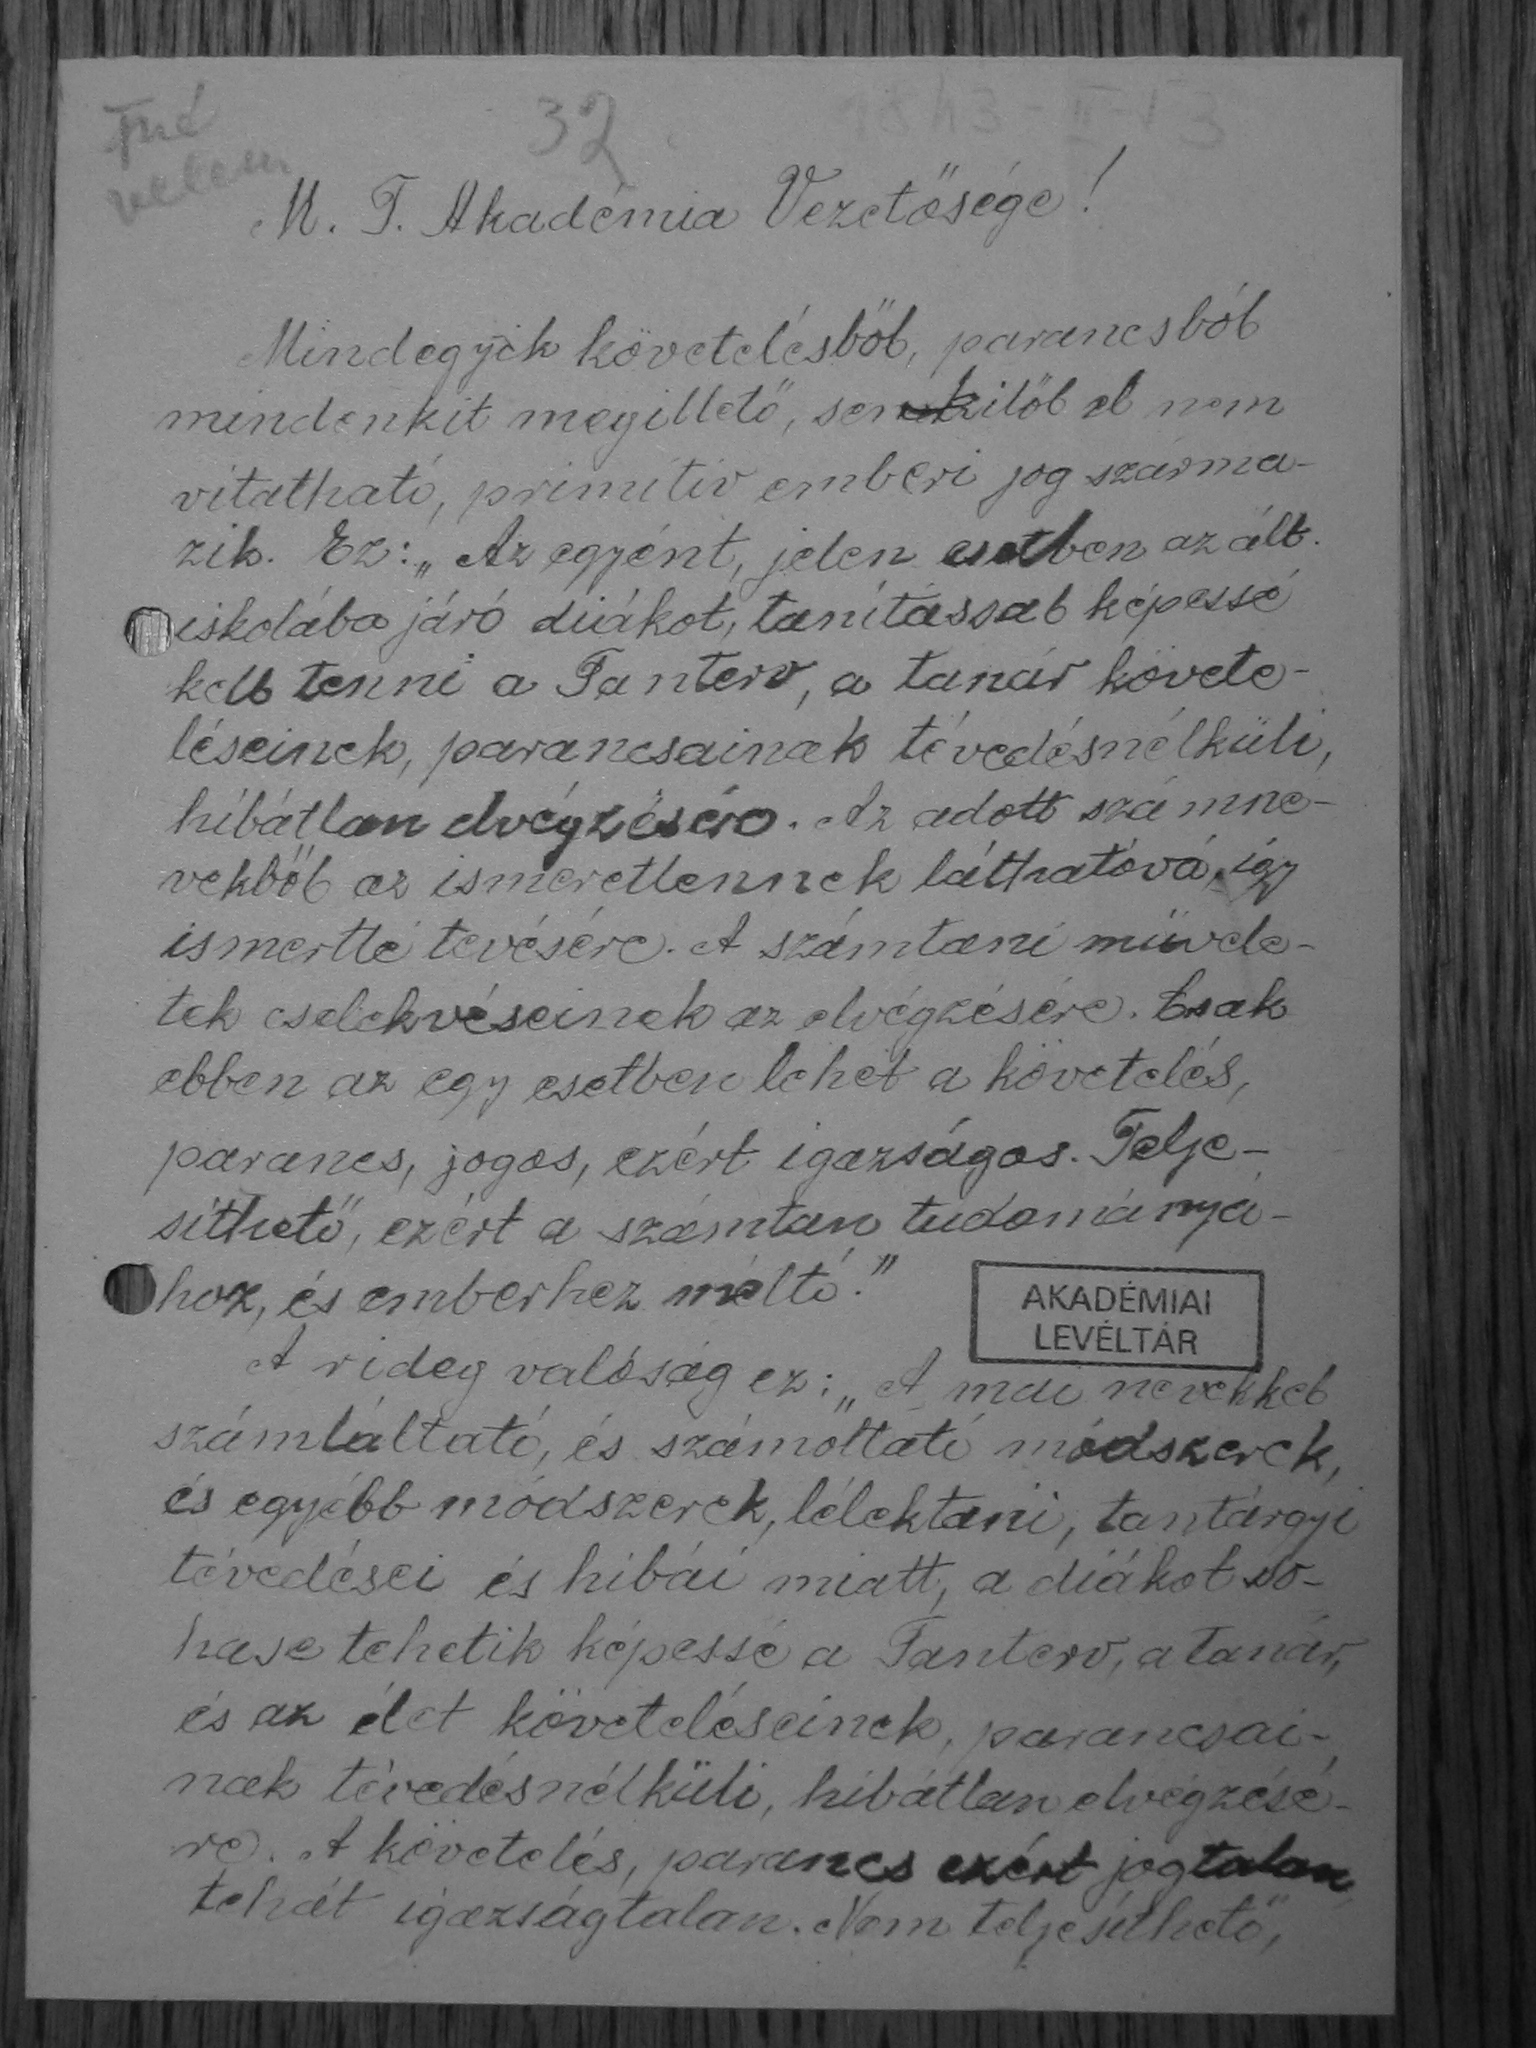 32
M. T. Akadémia Vezetősége!
Mindegyik követelésből, parancsból
mindenkit megillető, senkitől el nem
vitatható, primitiv emberi jog szárma-
zik. Ez: „Az egyént, jelen esetben az ált.
iskolába járó diákot, tanítással képessé
kell tenni a Tanterv, a tanár követe-
léseinek, parancsainak tévedésnélküli,
hibátlan elvégzésére. Az adott számne-
vekből az ismeretlennek láthatóvá, így
ismertté tevésére. A számtani művele-
tek cselekvéseinek az elvégzésére. Csak
ebben az egy esetben lehet a követelés,
parancs, jogos, ezért igazságos. Telje-
síthető, ezért a számtan tudományá-
hoz, és emberhez méltó."
AKADÉMIAI
LEVÉLTÁR
A rideg valóság ez: „A mai nevekkel
számláltató, és számoltató módszerek,
és egyébb módszerek, lélektani, tantárgyi
tévedései és hibái miatt, a diákot so-
hase tehetik képessé a Tanterv, a tanár,
és az élet követeléseinek, parancsai-
nak tévedésnélküli, hibátlan elvégzésé-
re. A követelés, parancs ezért jogtalan,
tehát igazságtalan. Nem teljesíthető,